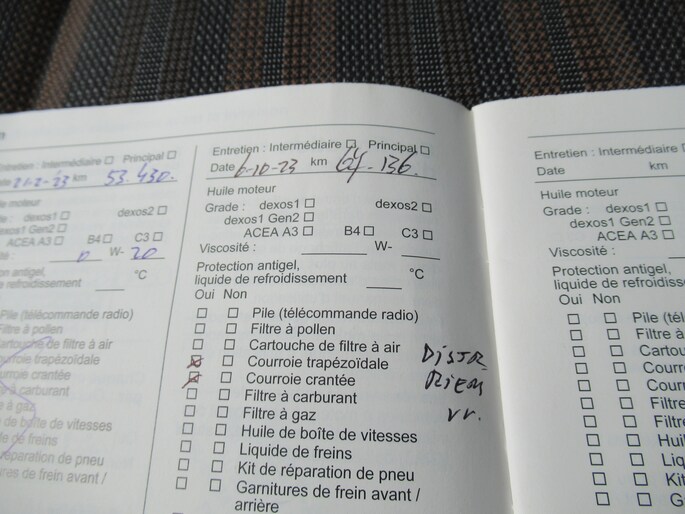 Entretien : Intermédiaire ☐ Principal ☐
21-2-23 km 53.430.
moteur
dexos1 ☐ dexos2 ☐
dexos1 Gen2 ☐
ACEA A3 ☐ B4 ☐ C3 ☐
0 W- 20
antigel,
refroidissement ____ °C
Non
☐ Pile (télécommande radio)
☐ Filtre à pollen
Cartouche de filtre à air
Courroie trapézoïdale
Courroie crantée
à carburant
à gaz
de boîte de vitesses
de freins
réparation de pneu
de frein avant /
Entretien : Intermédiaire ☐ Principal ☐
Date 6-10-23 km 64.136.
Huile moteur
Grade : dexos1 ☐ dexos2 ☐
dexos1 Gen2 ☐
ACEA A3 ☐ B4 ☐ C3 ☐
Viscosité : ________ W- ____
Protection antigel,
liquide de refroidissement ____ °C
Oui Non
☐ ☐ Pile (télécommande radio)
☐ ☐ Filtre à pollen
☐ ☐ Cartouche de filtre à air
☒ ☐ Courroie trapézoïdale
☒ ☐ Courroie crantée
☐ ☐ Filtre à carburant
☐ ☐ Filtre à gaz
☐ ☐ Huile de boîte de vitesses
☐ ☐ Liquide de freins
☐ ☐ Kit de réparation de pneu
☐ ☐ Garnitures de frein avant /
arrière
DISTR
RIEM
Entretien : Intermédiaire ☐
Date km
Huile moteur
Grade : dexos1 ☐
dexos1 Gen2 ☐
ACEA A3 ☐
Viscosité : ________
Protection antigel,
liquide de refroidiss
Oui Non
☐ ☐ Pile (tél
☐ ☐ Filtre à
☐ ☐ Cartou
☐ ☐ Courr
☐ ☐ Cour
☐ ☐ Filtre
☐ ☐ Filtr
☐ ☐ Huil
☐ ☐ Liq
☐ ☐ Kit
☐ ☐ G